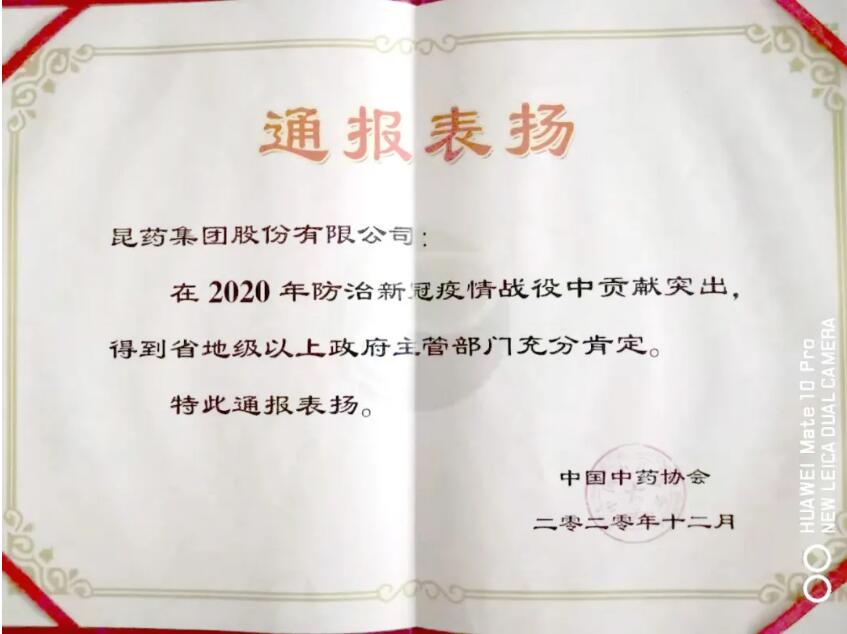 通报表扬
昆药集团股份有限公司：
在2020年防治新冠疫情战役中贡献突出，
得到省地级以上政府主管部门充分肯定。
特此通报表扬。
中国中药协会
二零二零年十二月
HUAWEI Mate 10 Pro
NEW LEICA DUAL CAMERA